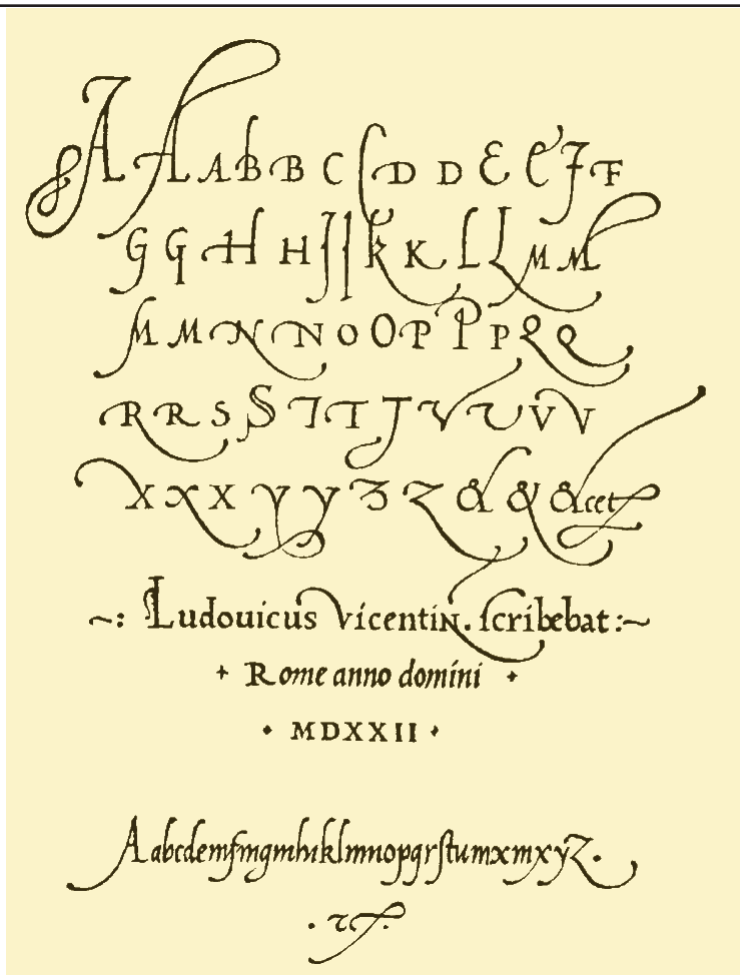 A A A B B C C D D E E F F
G G H H I I K K L L M M
M M N N O O P P P Q Q
R R S S T T T V U V V
X X X Y Y Z Z & & & cet
~: Ludouicus Vicentin. scribebat :~
+ Rome anno domini +
• MDXXII •
Aabcdemfmgmhiklmnopqrstumxmxyz.